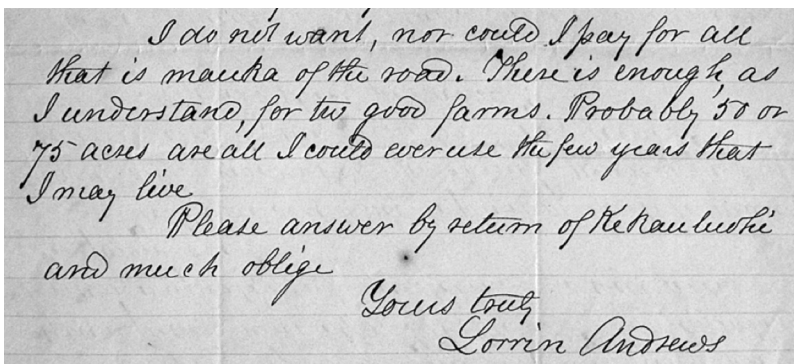 I do not want, nor could I pay for all
that is mauka of the road. There is enough, as
I understand, for two good farms. Probably 50 or
75 acres are all I could ever use the few years that
I may live
Please answer by return of Kekauluohi
and much oblige
Yours truly
Lorrin Andrews